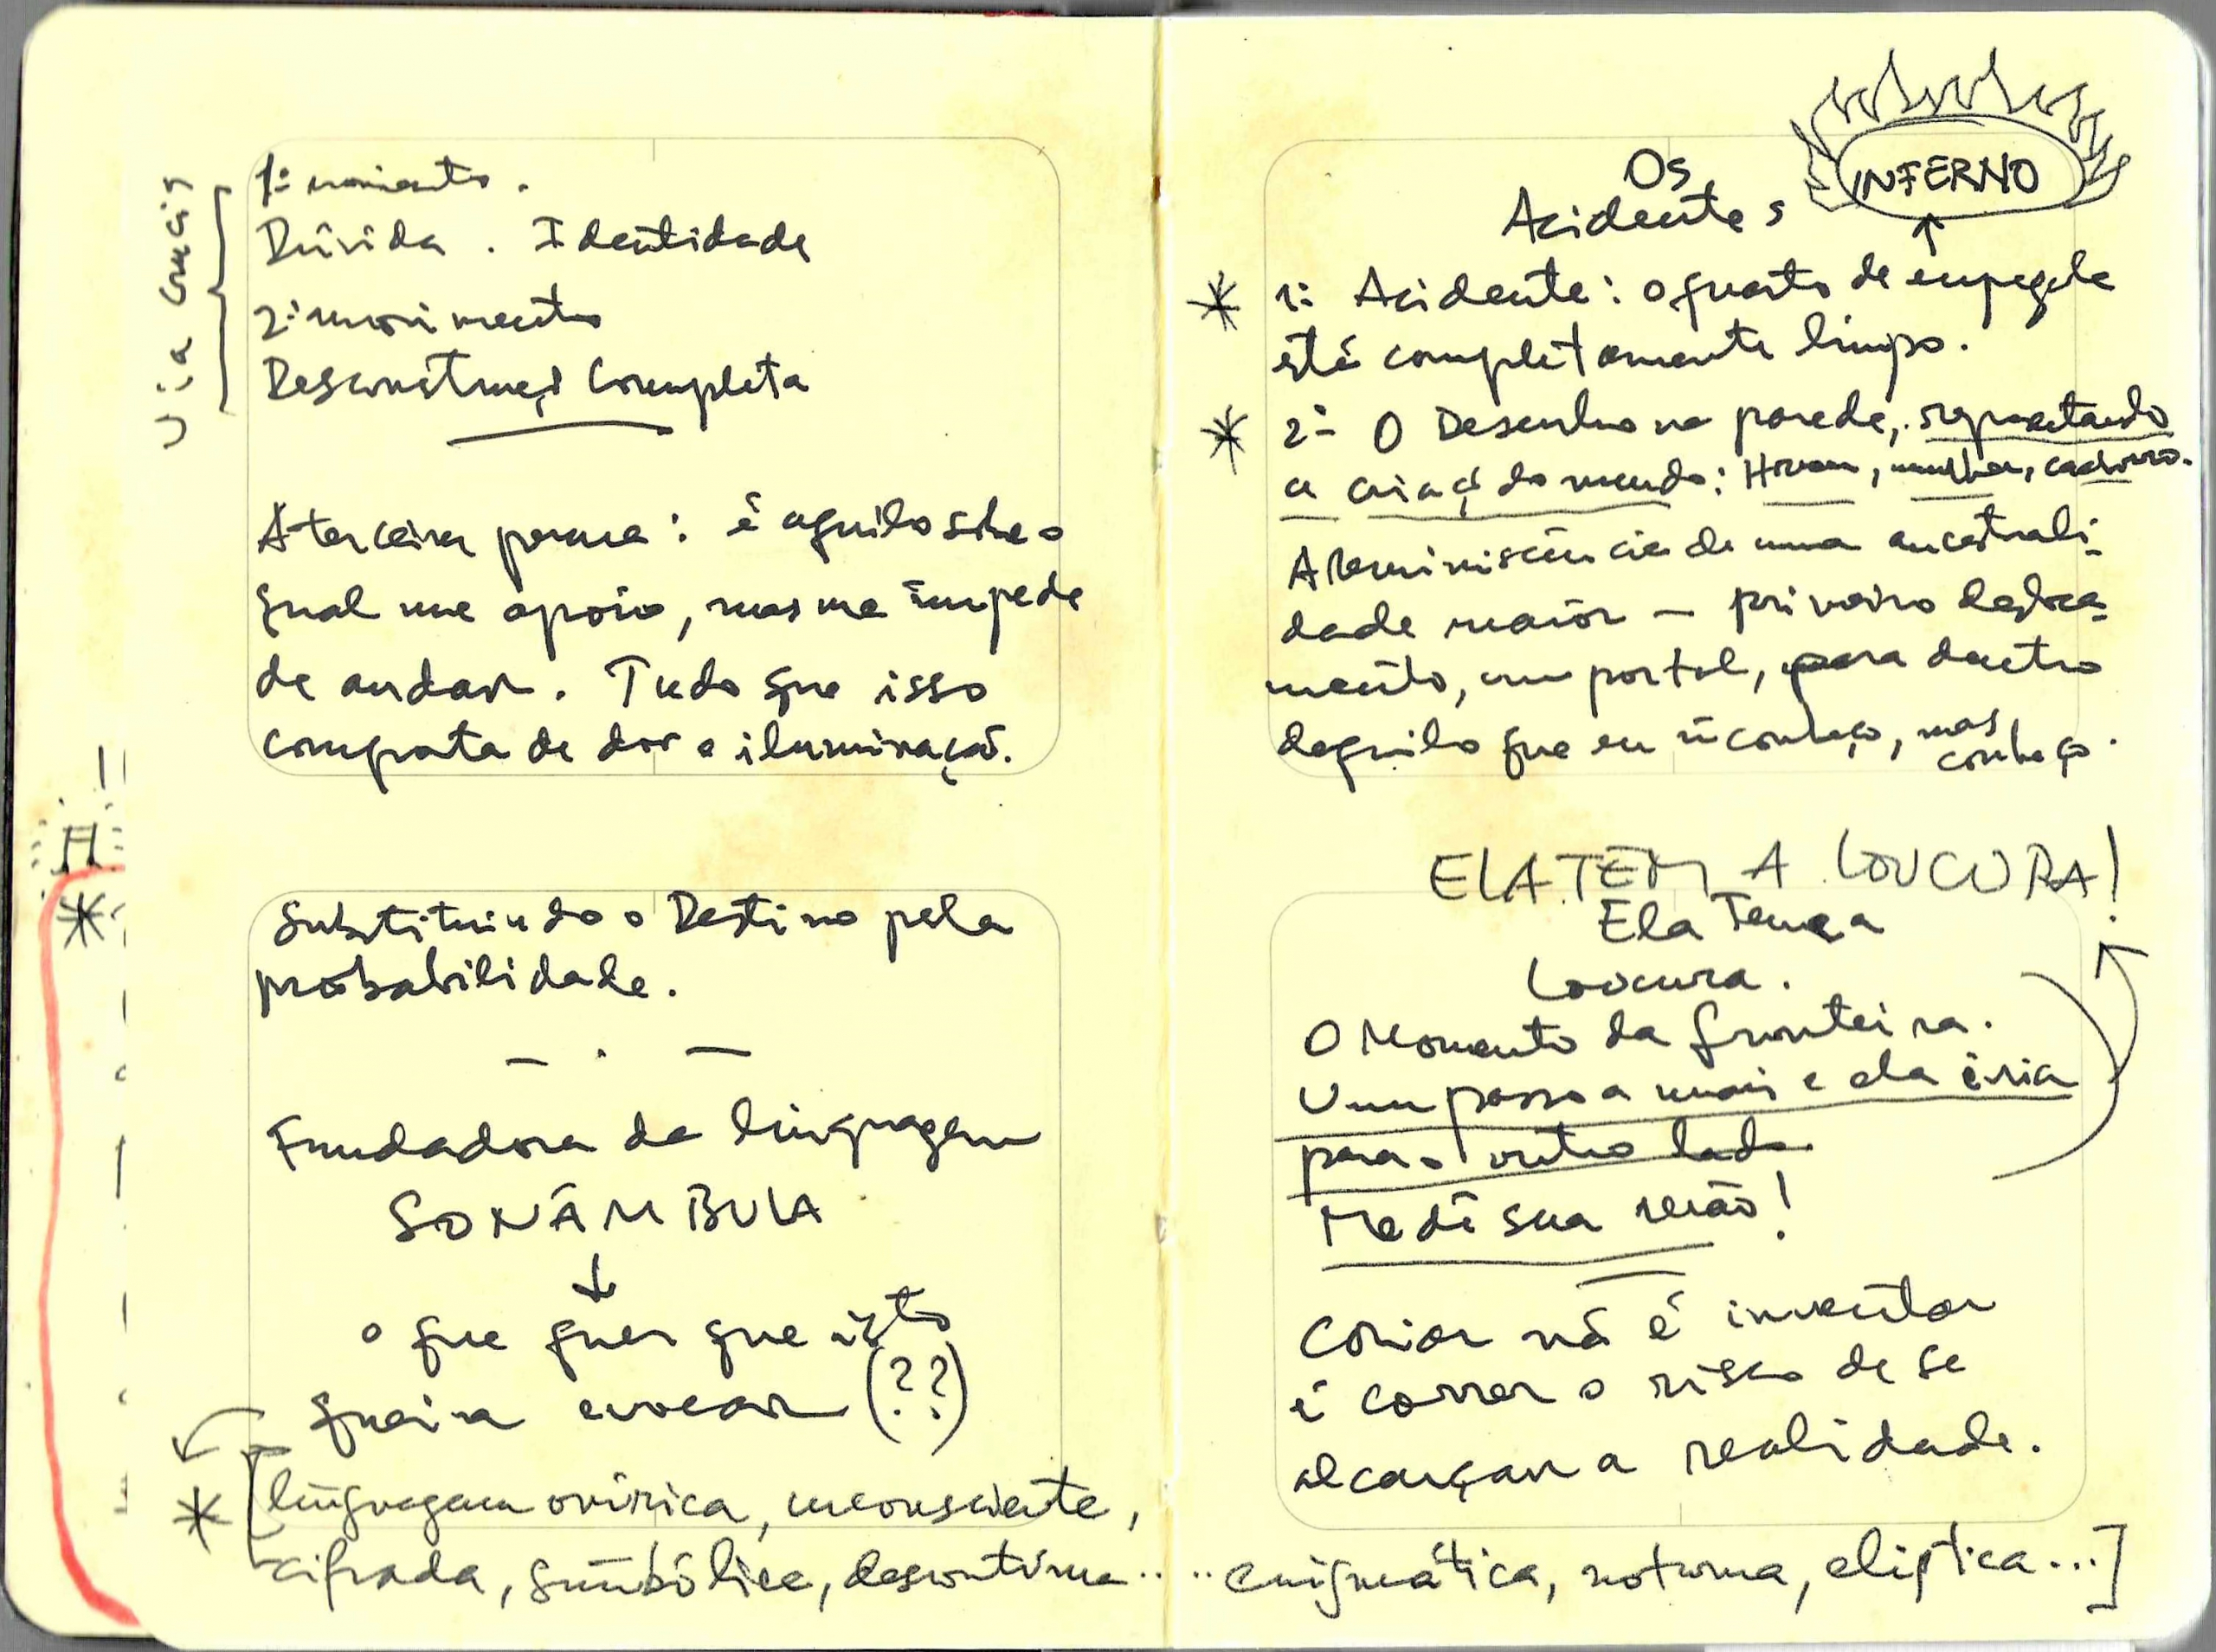 Via Crucis
1º movimento.
Dúvida. Identidade
2º movimento
Desconstruçã Completa
A terceira perna: é aquilo sobre o
qual me apoio, mas me impede
de andar. Tudo que isso
comporta de dor e iluminação.
Substituindo o Destino pela
probabilidade.
— . —
Fundadora da linguagem
SONÂMBULA
↓
o que quer que isto
queira evocar (??)
* [linguagem onírica, inconsciente,
cifrada, simbólica, descontínua...
Os
Acidentes
INFERNO
↑
* 1º Acidente: o quarto de empregada
está completamente limpo.
* 2º O Desenho na parede, representando
a criaçã do mundo: Homem, mulher, cachorro.
A reminiscência de uma ancestrali-
dade maior — primeiro desloca-
mento, um portal, para dentro
daquilo que eu ñ conheço, mas
conheço.
ELA TEM A LOUCURA!
Ela Tem a
Loucura.
O Momento da fronteira.
Um passo a mais e ela iria
para o outro lado
Me dê sua mão!
Criar nã é inventar
é correr o risco de se
alcançar a realidade.
..enigmática, noturna, elíptica...]
H
*